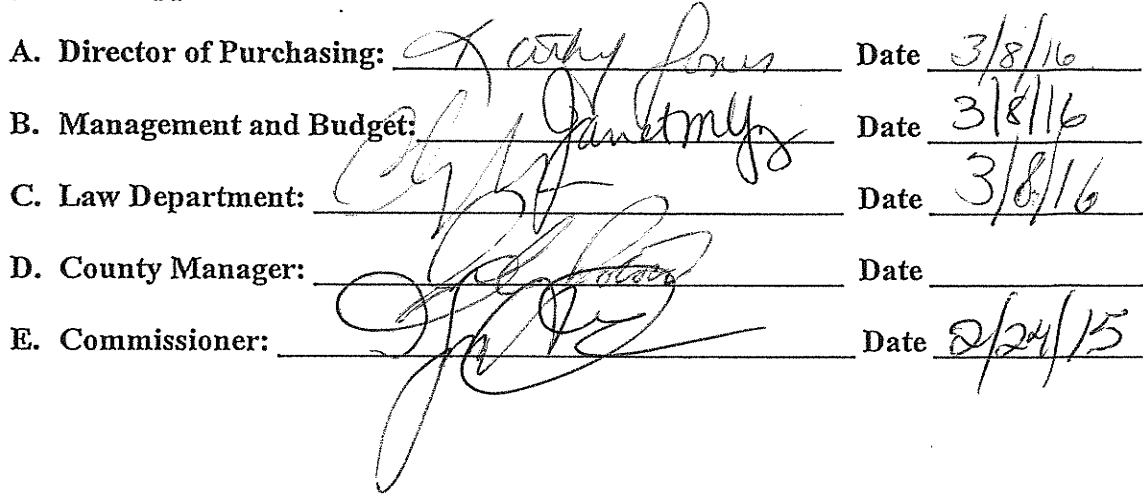 A. Director of Purchasing: Kathy Jones Date 3/8/16
B. Management and Budget: Date 3/8/16
C. Law Department: Date 3/8/16
D. County Manager: Date
E. Commissioner: Date 2/24/15